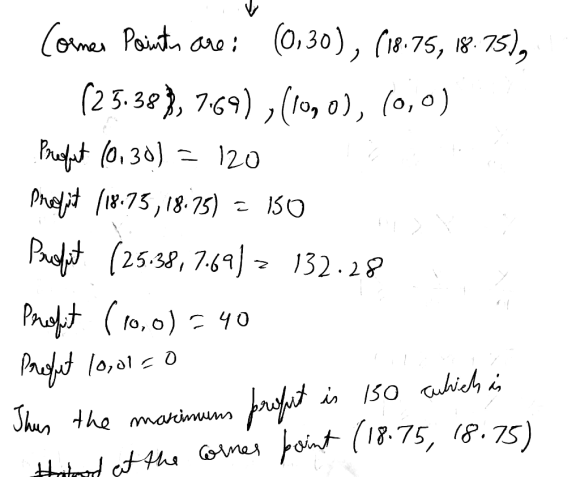 Corner Points are: (0,30), (18.75, 18.75),
(25.38, 7.69), (10, 0), (0, 0)
Profit (0,30) = 120
Profit (18.75, 18.75) = 150
Profit (25.38, 7.69) = 132.28
Profit (10, 0) = 40
Profit (0,0) = 0
Thus the maximum profit is 150 which is
at the corner point (18.75, 18.75)